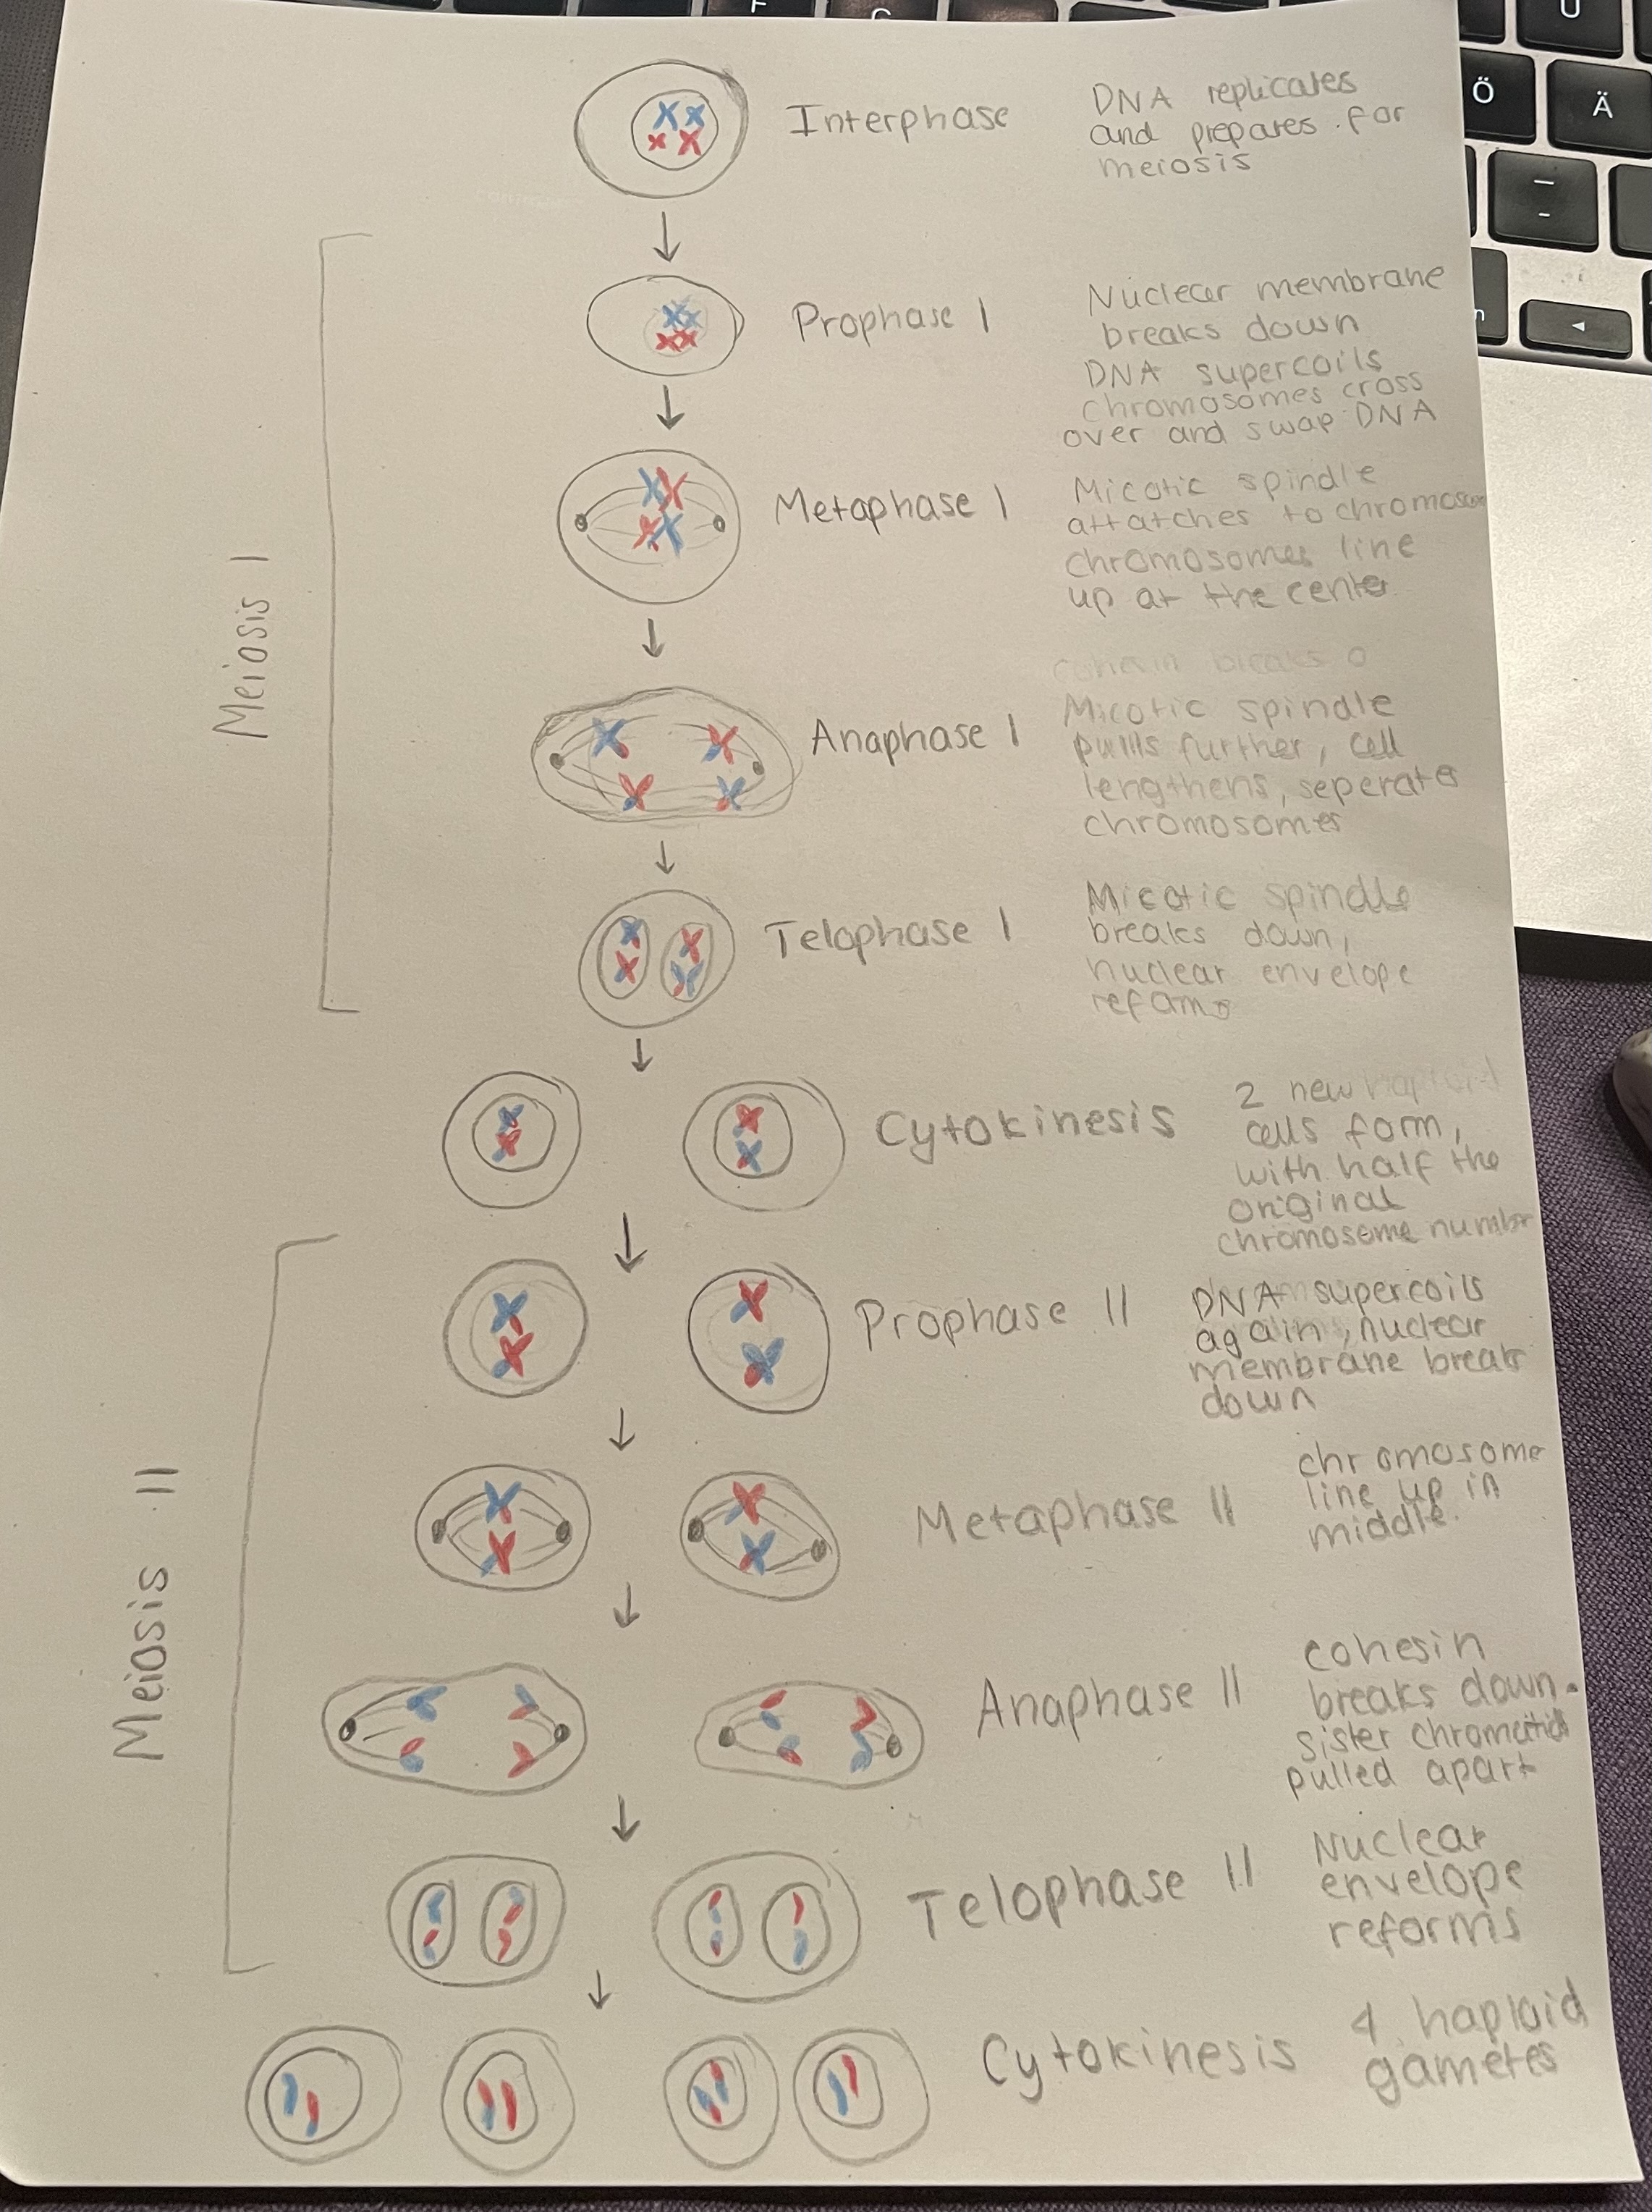 F
G
U
Ö
Ä
Interphase
DNA replicates
and prepares for
meiosis
Meiosis I
Prophase I
Nuclear membrane
breaks down
DNA supercoils
chromosomes cross
over and swap DNA
Metaphase I
Micotic spindle
attatches to chromosom
chromosomes line
up at the center
cohesin breaks
Anaphase I
Micotic spindle
pullls further, cell
lengthens, seperates
chromosomes
Telophase I
Micotic spindle
breaks down,
nuclear envelope
reforms
Cytokinesis
2 new haploid
cells form,
with half the
original
chromosome number
Meiosis II
Prophase II
DNA supercoils
again, nuclear
membrane breaks
down
Metaphase II
chromosome
line up in
middle.
Anaphase II
cohesin
breaks down.
sister chromatids
pulled apart
Telophase II
Nuclear
envelope
reforms
Cytokinesis
4 haploid
gametes